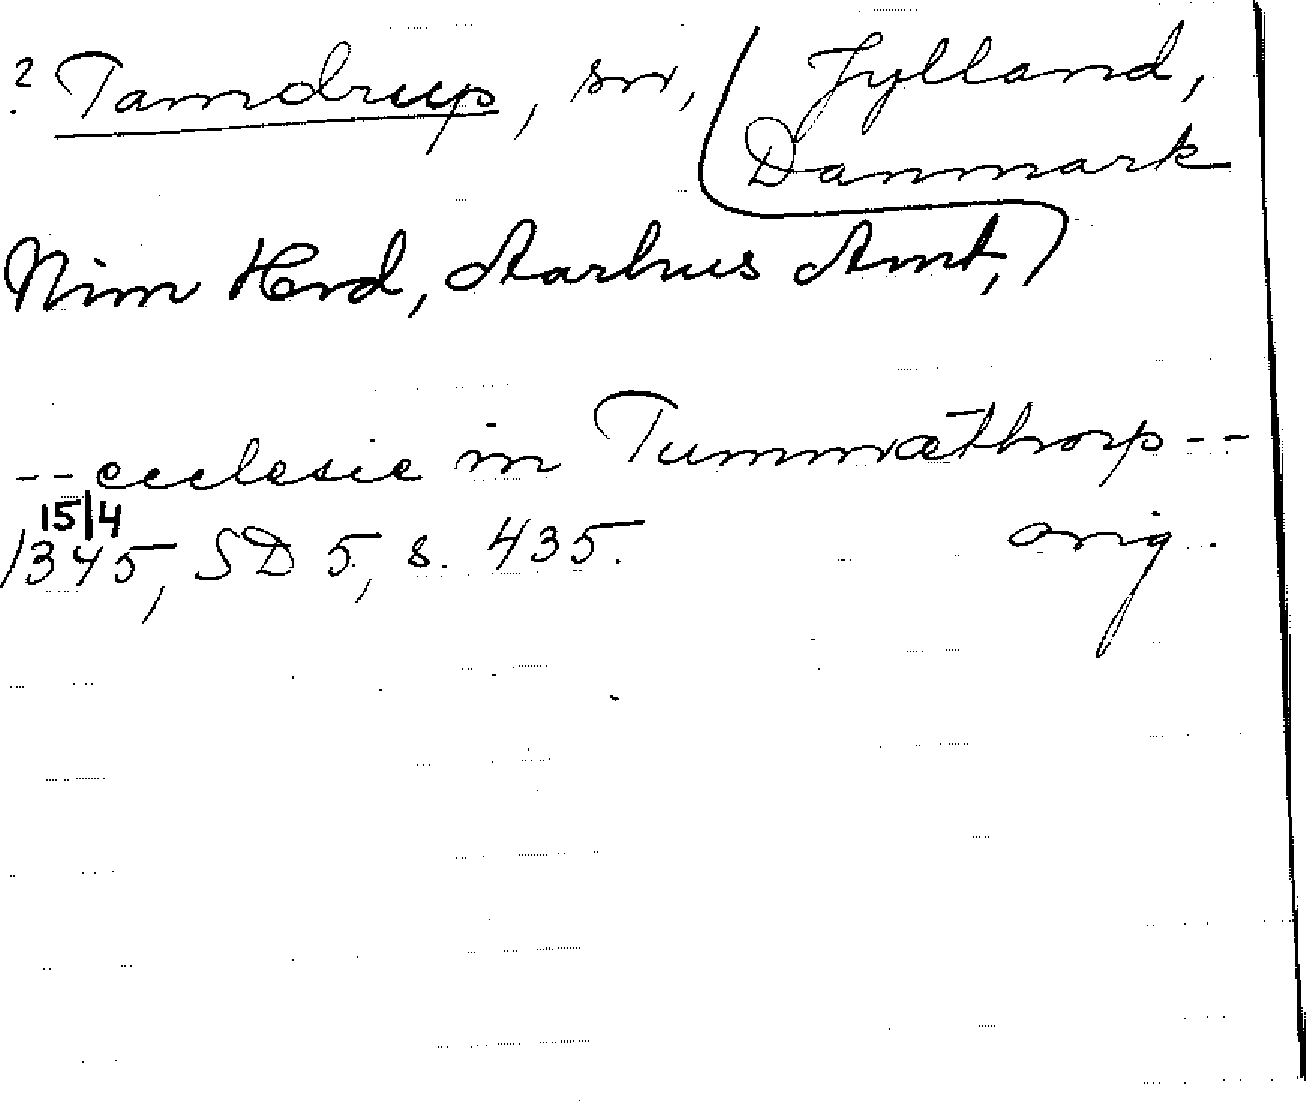 ? Tamdrup, sn, Jylland,
Danmark
Nim Hrd, Aarhus Amt,
-- ecclesie in Tummæthorp --
15/4
1345, SD 5, s. 435. orig.